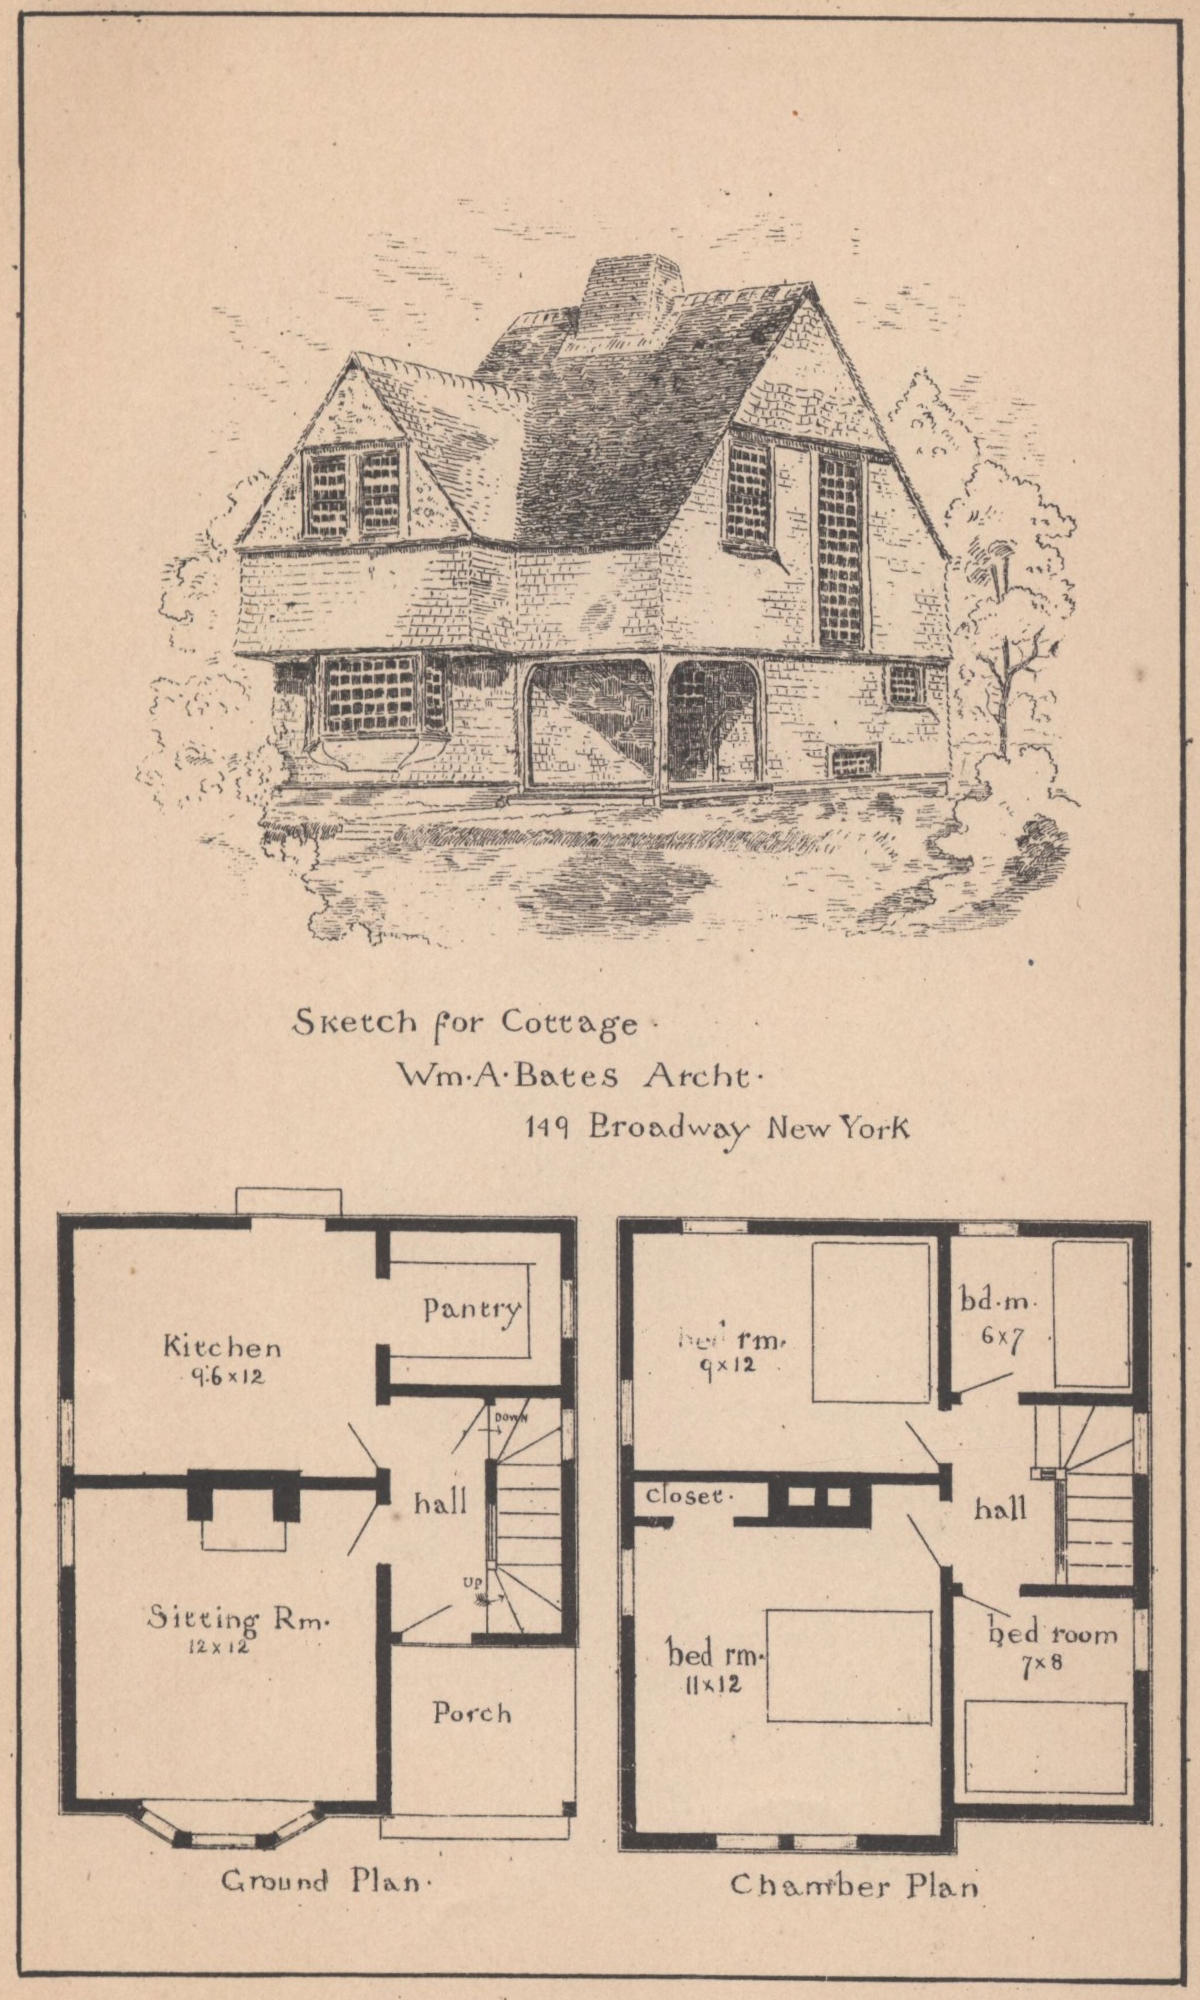 Sketch for Cottage ·
Wm·A·Bates Archt·
149 Broadway New York
Kitchen
9:6 x 12
Pantry
DOWN
hall
UP
Sitting Rm·
12 x 12
Porch
Ground Plan·
bed rm·
9 x 12
bd·m·
6 x 7
closet·
hall
bed rm·
11 x 12
bed room
7 x 8
Chamber Plan